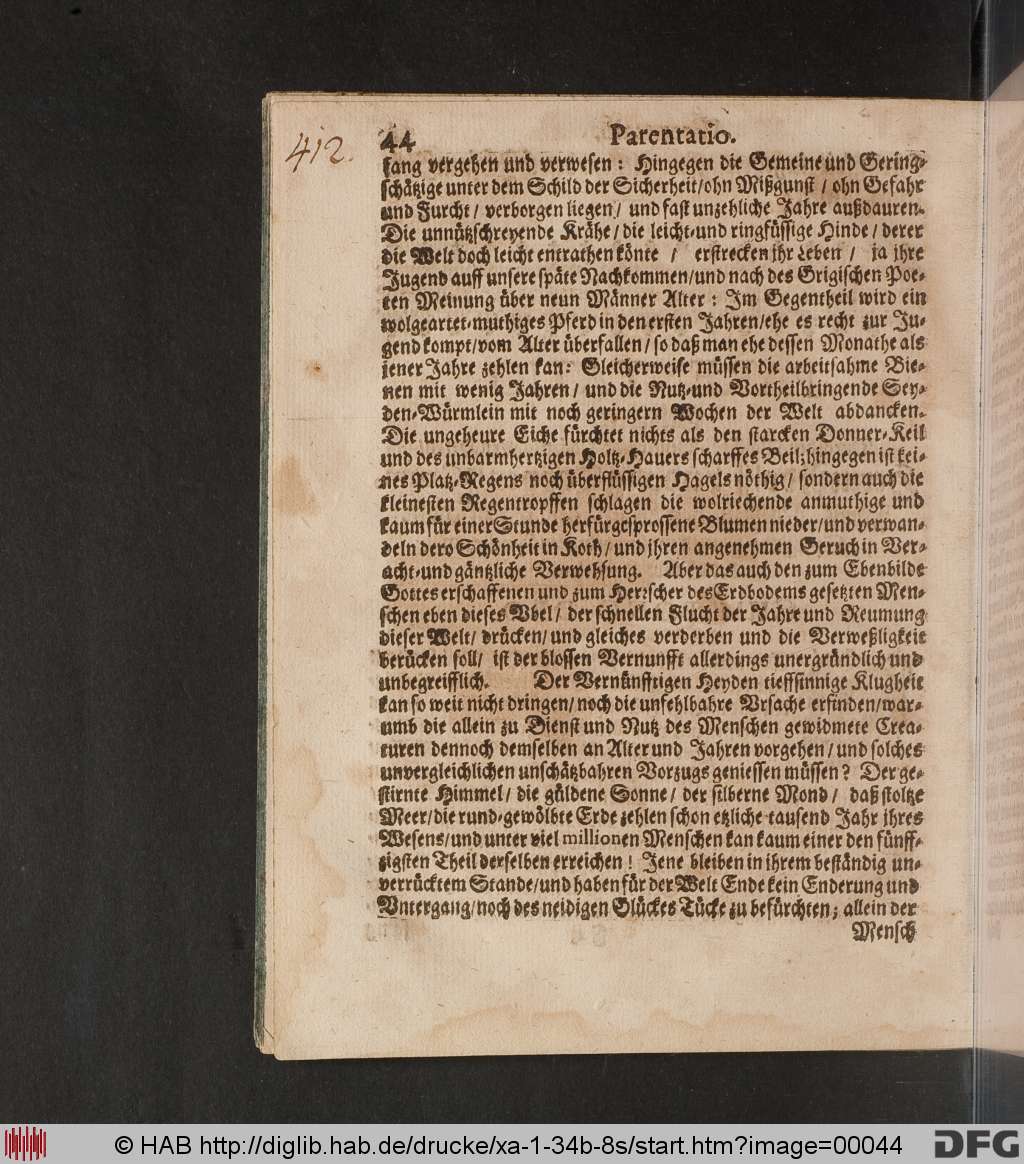 412.
44 Parentatio.
fang vergehen und verwesen : Hingegen die Gemeine und Gering-
schätzige unter dem Schild der Sicherheit/ohn Mißgunst / ohn Gefahr
und Furcht / verborgen liegen / und fast unzehliche Jahre außdauren.
Die unnützschreyende Krähe / die leicht-und ringfüssige Hinde / derer
die Welt doch leicht entrathen könte / erstrecken jhr Leben / ja jhre
Jugend auff unsere späte Nachkommen/und nach des Grigischen Poe-
ten Meinung über neun Männer Alter : Im Gegentheil wird ein
wolgeartet-muthiges Pferd in den ersten Jahren/ehe es recht zur Ju-
gend kompt/vom Alter überfallen / so daß man ehe dessen Monathe als
jener Jahre zehlen kan: Gleicherweise müssen die arbeitsahme Bie-
nen mit wenig Jahren / und die Nutz-und Vortheilbringende Sey-
den-Würmlein mit noch geringern Wochen der Welt abdancken.
Die ungeheure Eiche fürchtet nichts als den starcken Donner-Keil
und des unbarmhertzigen Holtz-Hauers scharffes Beil; hingegen ist kei-
nes Platz-Regens noch überflüssigen Hagels nöthig / sondern auch die
kleinesten Regentropffen schlagen die wolriechende anmuthige und
kaum für einer Stunde herfürgesprossene Blumen nieder/und verwan-
deln dero Schönheit in Koth / und jhren angenehmen Geruch in Ver-
acht-und gäntzliche Verwehsung. Aber das auch den zum Ebenbilde
Gottes erschaffenen und zum Herrscher des Erdbodems gesetzten Men-
schen eben dieses Vbel / der schnellen Flucht der Jahre und Reumung
dieser Welt / drücken / und gleiches verderben und die Verweßligkeit
berücken soll / ist der blossen Vernunfft allerdings unergründlich und
unbegreifflich. Der Vernünfftigen Heyden tieffsinnige Klugheit
kan so weit nicht dringen / noch die unfehlbahre Vrsache erfinden/war-
umb die allein zu Dienst und Nutz des Menschen gewidmete Crea-
turen dennoch demselben an Alter und Jahren vorgehen / und solches
unvergleichlichen unschätzbahren Vorzugs geniessen müssen? Der ge-
stirnte Himmel / die güldene Sonne / der silberne Mond / daß stoltze
Meer/die rund-gewölbte Erde zehlen schon etzliche tausend Jahr jhres
Wesens/und unter viel millionen Menschen kan kaum einer den fünff-
zigsten Theil derselben erreichen ! Jene bleiben in ihrem beständig un-
verrücktem Stande/und haben für der Welt Ende kein Enderung und
Vntergang/noch des neidigen Glückes Tücke zu befürchten; allein der
Mensch
© HAB http://diglib.hab.de/drucke/xa-1-34b-8s/start.htm?image=00044
DFG